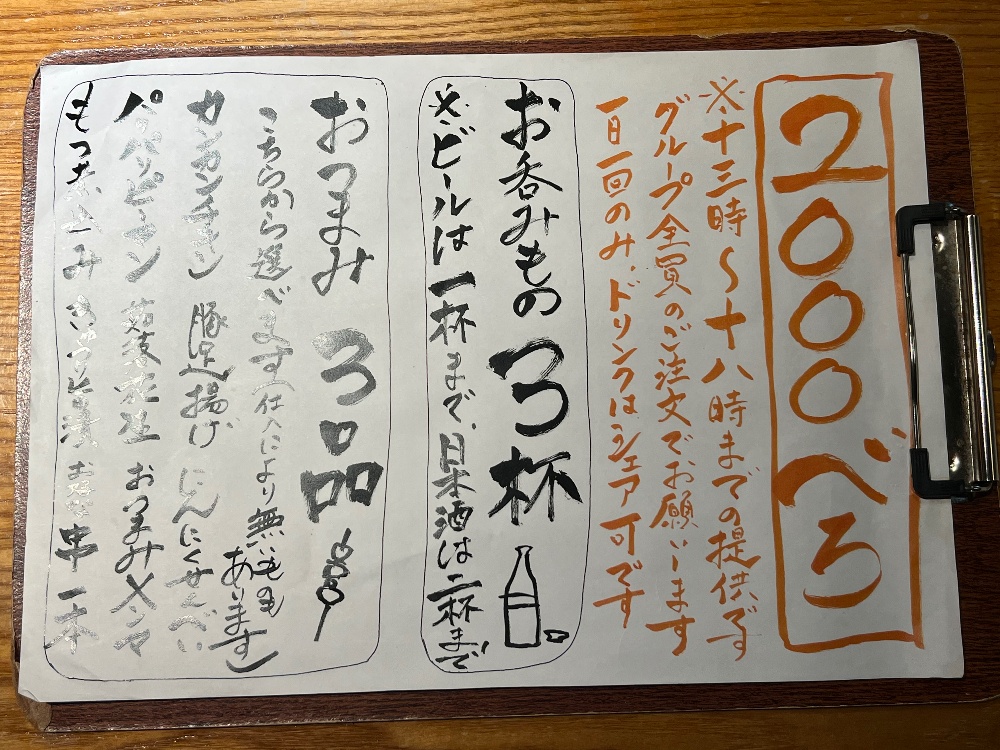 2000べろ
※十三時〜十八時までの提供です
グループ全員のご注文でお願いします
一日一回のみ、ドリンクはシェア可です
お呑みもの 3杯
※ビールは一杯まで、日本酒は二杯まで
おつまみ 3品
こちらから選べます(仕入により無いものも
あります)
豚足揚げ にんにくせんべい
おつまみメンマ
もつ煮込み 串一本